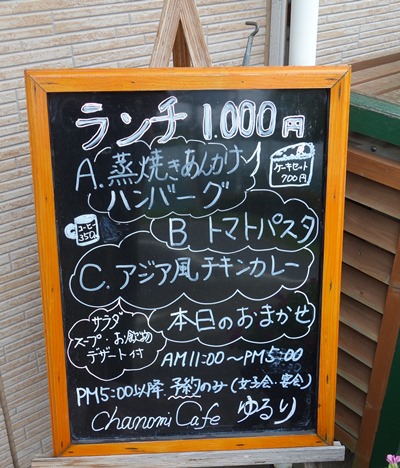 ランチ 1.000円
A. 蒸焼きあんかけ
ハンバーグ
ケーキセット
700円
コーヒー
350
B トマトパスタ
C. アジア風チキンカレー
サラダ
スープ・お飲物
デザート付
本日のおまかせ
AM11:00〜PM5:00
PM5:00以降 予約のみ(女子会・宴会)
Chanomi Cafe ゆるり